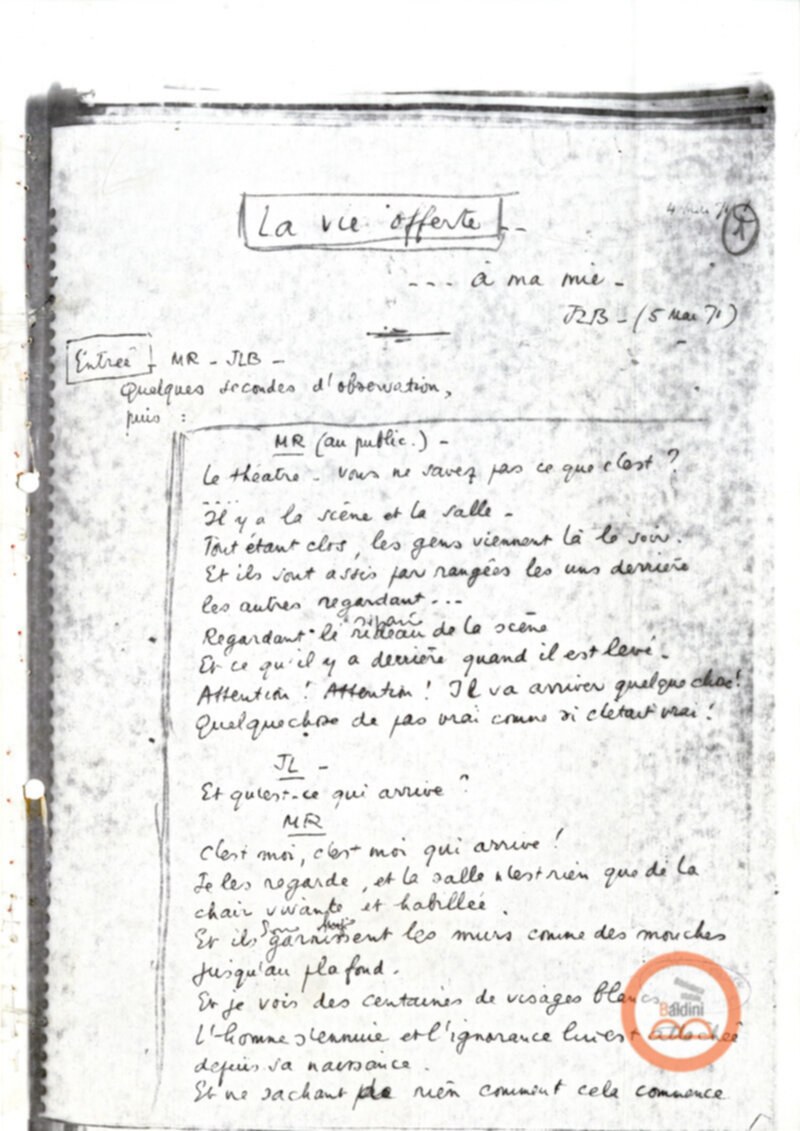 La vie offerte --
--- à ma mie -
JLB - (5 Mai 71)
Entrée - MR - JLB -
Quelques secondes d'observation,
puis :
MR (au public.) -
Le théatre - vous ne savez pas ce que c'est ?
....
Il y a la scène et la salle -
Tout étant clos, les gens viennent là le soir.
Et ils sont assis par rangées les uns derrière
les autres regardant ...
Regardant le rideau de la scène
Et ce qu'il y a derrière quand il est levé -
Attention ! Attention ! Il va arriver quelque chose !
Quelque chose de pas vrai comme si c'était vrai !
JL -
Et qu'est-ce qui arrive ?
MR
C'est moi, c'est moi qui arrive !
Je les regarde, et la salle n'est rien que de la
chair vivante et habillée.
Et ils garnissent les murs comme des mouches
jusqu'au plafond.
Et je vois des centaines de visages blancs
L'homme s'ennuie et l'ignorance lui est attachée
depuis sa naissance.
Et ne sachant de rien comment cela commence
Baldini